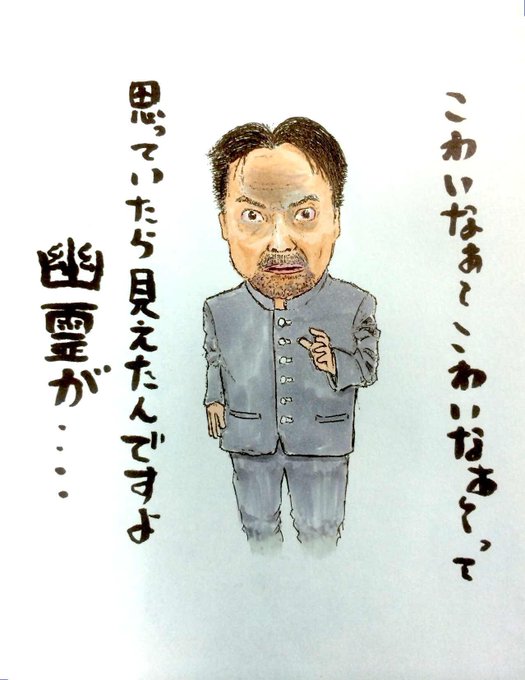 こわいなぁ～こわいなぁ～って
思っていたら見えたんですよ
幽霊が....